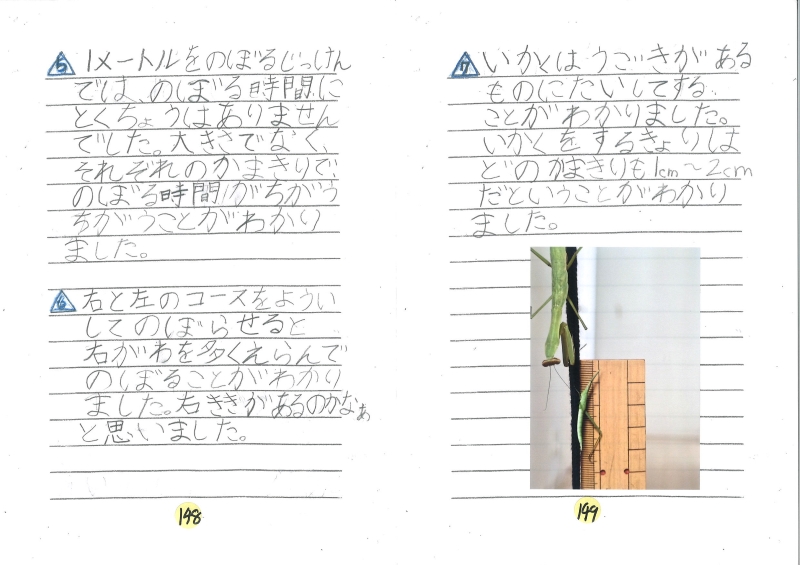 5 1メートルをのぼるじっけん
では、のぼる時間に
とくちょうはありません
でした。大きさでなく、
それぞれのかまきりで、
のぼる時間がちがう
ちがうことがわかり
ました。
6 右と左のコースをようい
してのぼらせると
右がわを多くえらんで
のぼることがわかり
ました。右ききがあるのかなぁ
と思いました。
148
7 いかくはうごきがある
ものにたいしてする
ことがわかりました。
いかくをするきょりは
どのかまきりも1cm~2cm
だということがわかり
ました。
149